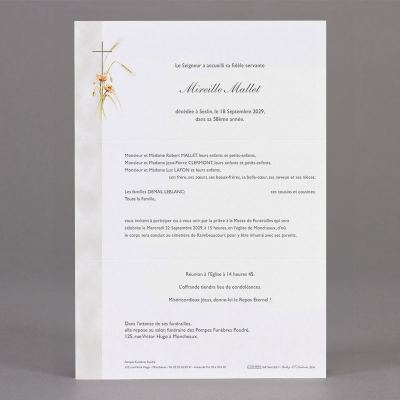 Le Seigneur a accueilli sa fidèle servante
Mireille Mallet
décédée à Seclin, le 18 Septembre 2029,
dans sa 58ème année.
Monsieur et Madame Robert MALLET, leurs enfants et petits-enfants,
Monsieur et Madame Jean-Pierre CLERMONT, leurs enfants et petits-enfants,
Monsieur et Madame Luc LAFON et leurs enfants,
son frère, ses sœurs, ses beaux-frères, sa belle-sœur, ses neveux et ses nièces.
Les familles DEMAIL LEBLANC; ses cousins et cousines.
Toute la famille,
vous invitent à participer ou à vous unir par la prière à la Messe de Funérailles qui sera
célébrée le Mercredi 22 Septembre 2029, à 15 heures, en l'église de Moncheaux, d'où
le corps sera conduit au cimetière de Raimbeaucourt pour y être inhumé avec ses parents.
Réunion à l'Eglise à 14 heures 45.
L'offrande tiendra lieu de condoléances.
Miséricordieux Jésus, donne-lui le Repos Eternel !
Dans l'attente de ses funérailles,
elle repose au salon funéraire des Pompes Funèbres Poudré,
125, rue Victor Hugo à Moncheaux.
Pompes Funèbres Poudré